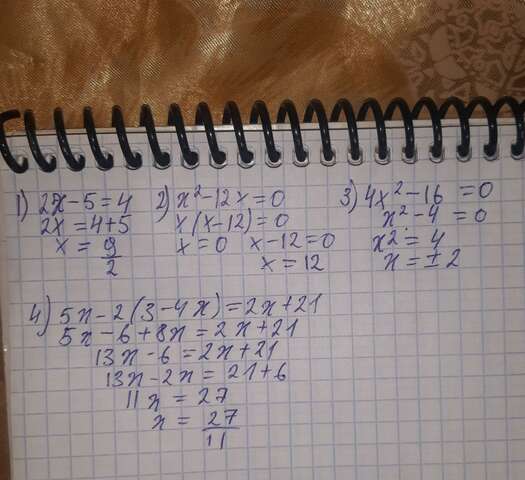 1) 2x-5=4
2x=4+5
x = 9/2
2) x²-12x=0
x(x-12)=0
x=0 x-12=0
x=12
3) 4x²-16=0
x²-4=0
x²=4
x=±2
4) 5x-2(3-4x)=2x+21
5x-6+8x=2x+21
13x-6=2x+21
13x-2x=21+6
11x=27
x=27/11